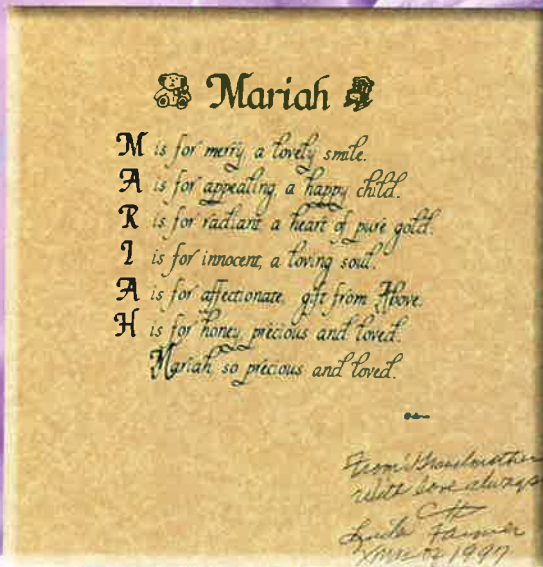 Mariah
M is for merry, a lovely smile.
A is for appealing, a happy child.
R is for radiant a heart of pure gold.
I is for innocent, a loving soul.
A is for affectionate, gift from Above.
H is for honey, precious and loved.
Mariah, so precious and loved.
From Grandmother
With love always
Farmer
1997